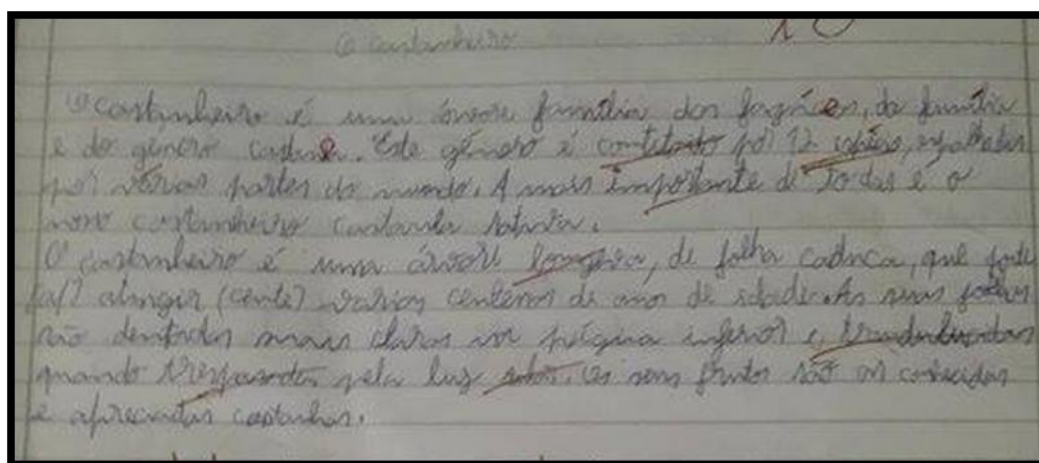 O castanheiro
O castanheiro é uma árvore família das fagáceas, da família
e do género castanea. Este género é constituído por 12 espécies, espalhadas
por várias partes do mundo. A mais importante de todas é o
nosso castanheiro castanha sativa.
O castanheiro é uma árvore longeva, de folha caduca, que pode
atingir (cente) varios centenas de anos de idade. As suas folhas
são dentadas mais claras na página inferior e translucidas
quando trespassadas pela luz solar. Os seus frutos são as conhecidas
e apreciadas castanhas.